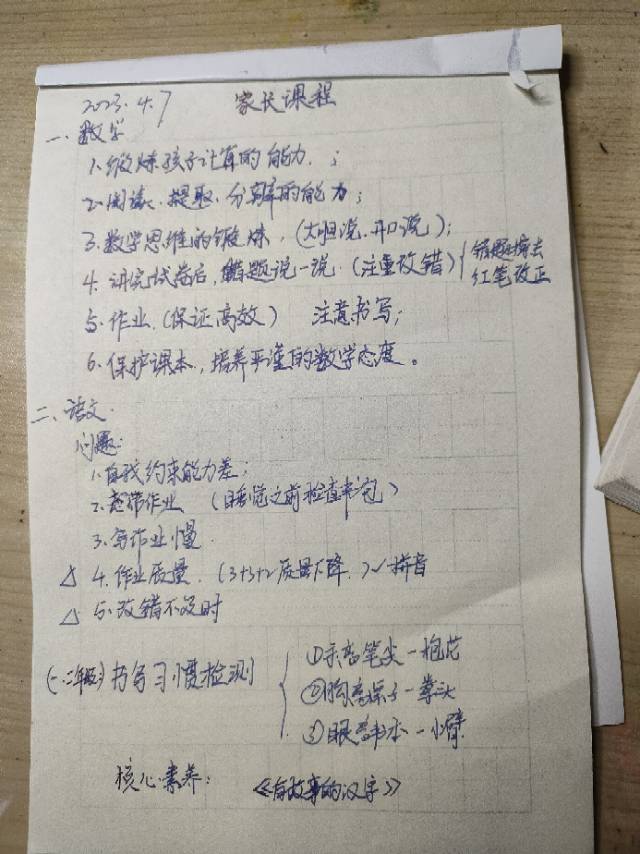 2023.4.7 家长课程
一、数学
1.锻炼孩子计算的能力.；
2.阅读、提取、分辨的能力；
3.数学思维的锻炼，(大胆说.开口说)；
4.讲完试卷后，错题说一说.(注重改错){错题擦去
红笔改正
5.作业.(保证高效) 注意书写；
6.保护课本，培养严谨的数学态度。
二、语文.
问题:
1.自我约束能力差；
2.忘带作业 (睡觉之前检查书包)
3.写作业慢.
△ 4.作业质量.(3+3+2质量下降.)✓拼音
△ 5.改错不及时
(一.二年级)书写习惯检测 {
①手离笔尖一抱芯
②胸离桌子一拳头
③眼离书本一小臂
核心素养: 《有故事的汉字》